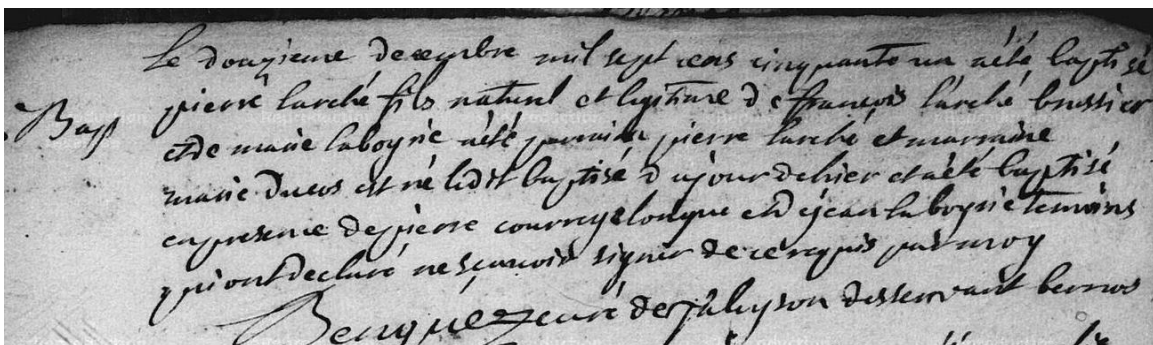 Le douzieme decembre mil sept cens cinquante un aété baptisé
Bap pierre larché fils naturel et legitime de françois larché brassier
et de marie laboyrie aété parrain pierre larché et marraine
marie ducos est né ledit baptisé dujour dehier et aété baptisé
en presence de pierre courreyelongue et de jean laboyrie temoins
qui ont declaré ne sçavoir signer de ce requis par moy
curé de desservant bernos